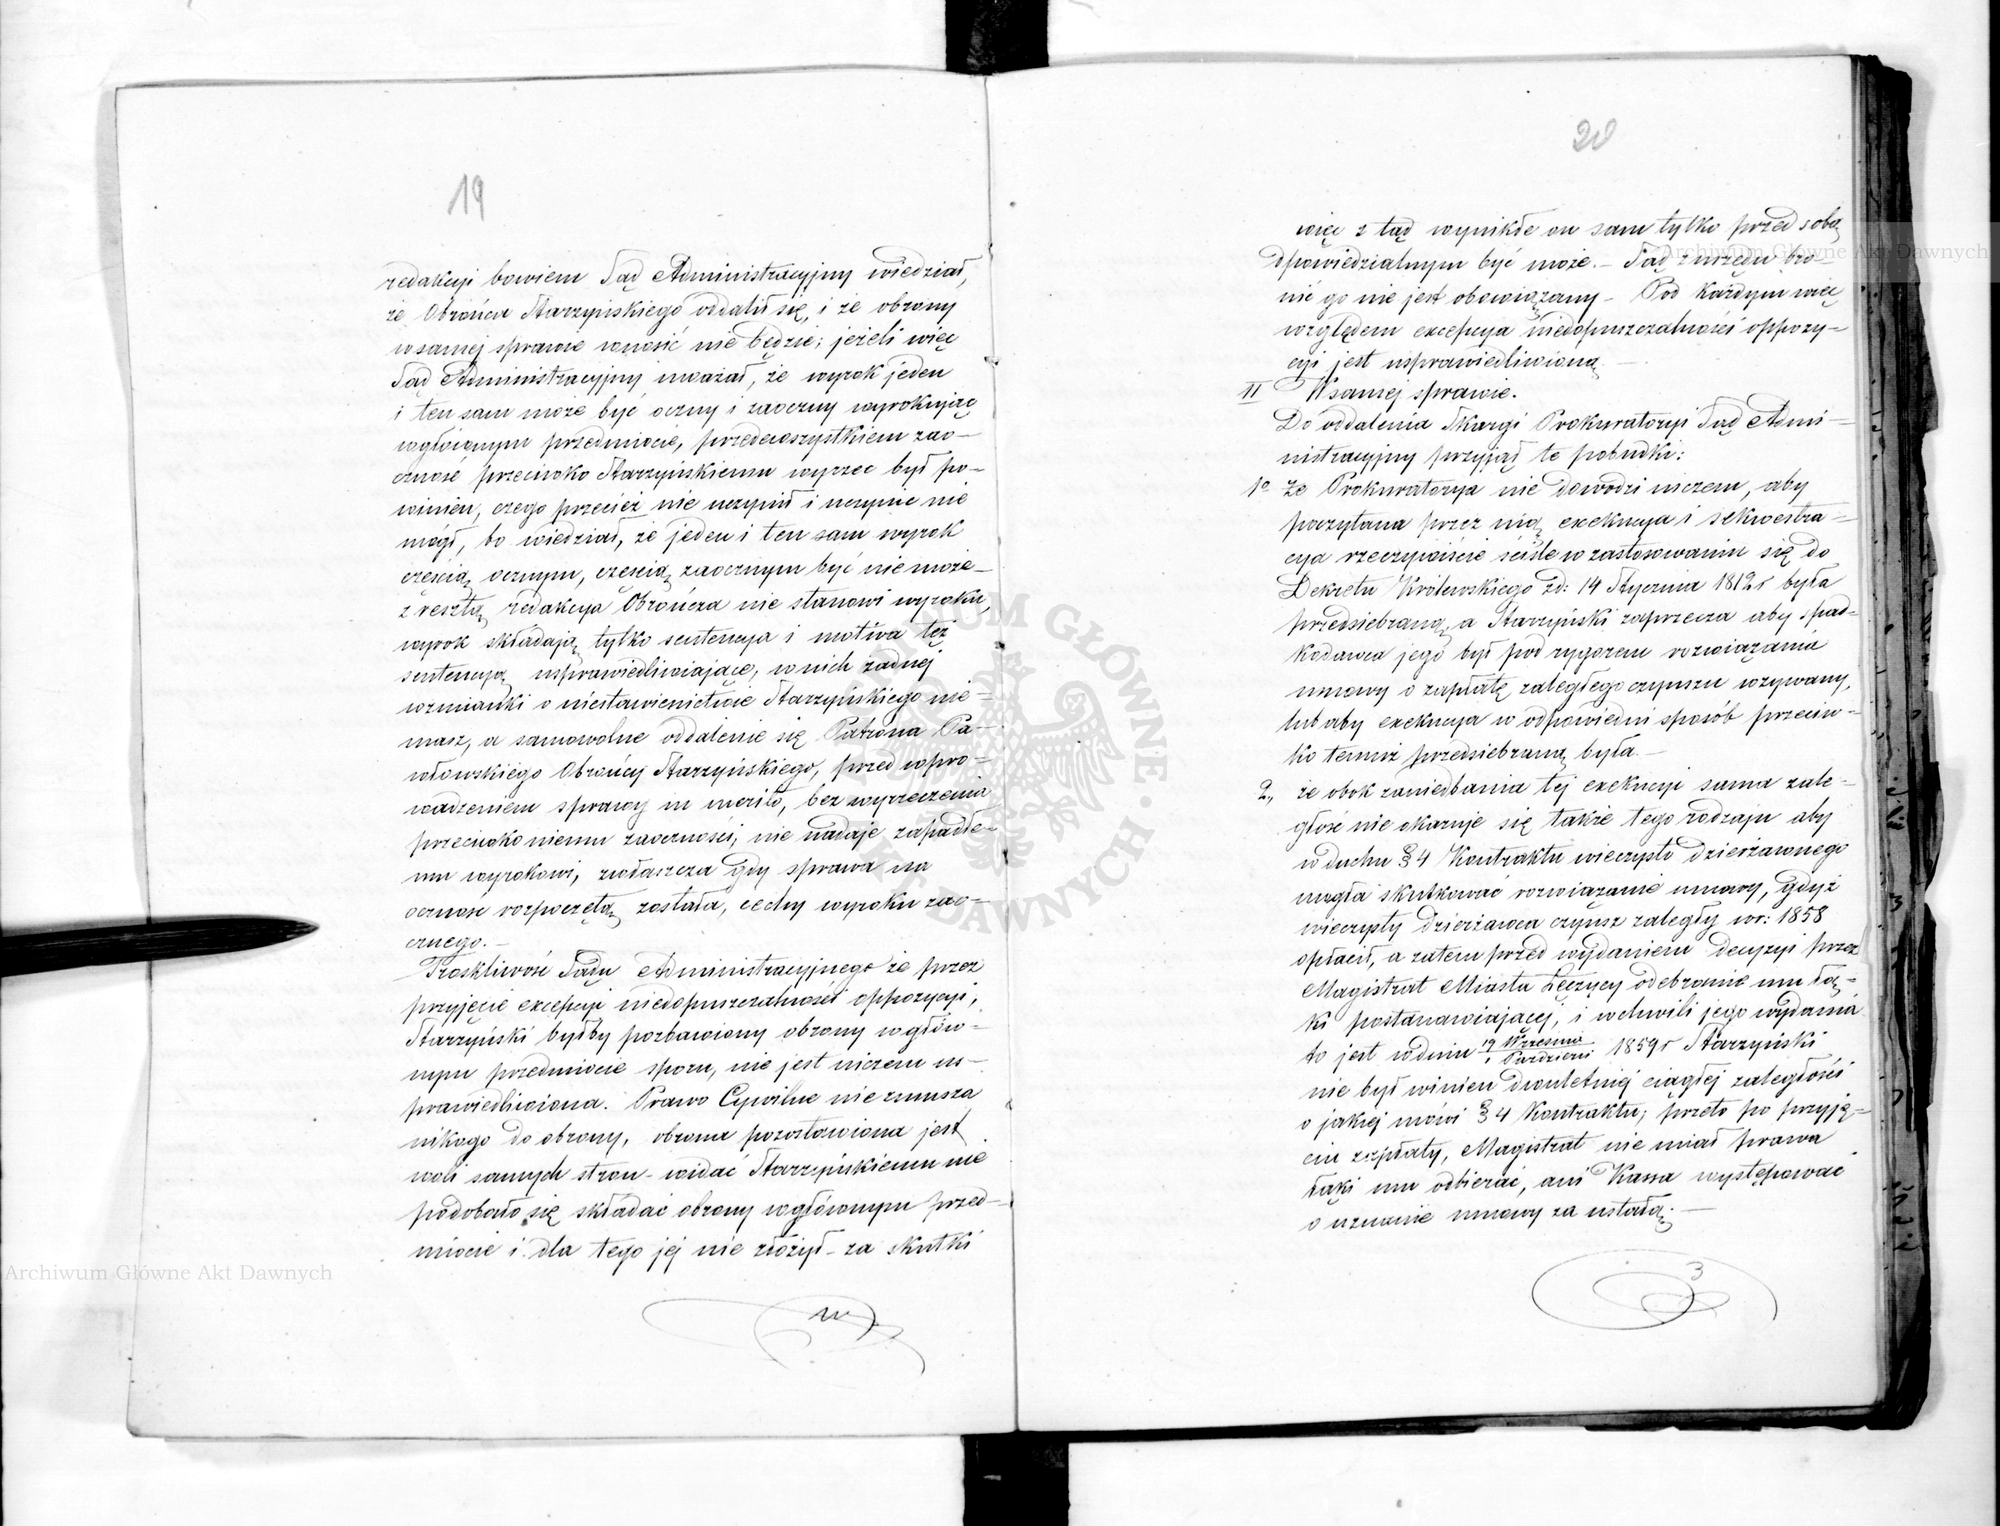 19
redakcyi bowiem Sąd Administracyjny wiedział,
że Obrońca Starzyńskiego oddalił się, i że obrony
w samej sprawie wnosić nie będzie; jeżeli więc
Sąd Administracyjny uważał, że wyrok jeden
i ten sam może być oczny i zaoczny wyrokując
w głównym przedmiocie, przedewszystkiem zao-
czność przeciwko Starzyńskiemu wyrzec był po-
winien, czego przecież nie uczynił i uczynić nie
mógł, bo wiedział, że jeden i ten sam wyrok
częścią ocznym, częścią zaocznym być nie może-
z resztą redakcya Obrończa nie stanowi wyroku,
wyrok składają tylko sentencya i motiwa też
sentencyą usprawiedliwiające, w nich żadnej
wzmianki o niestawiennictwie Starzyńskiego nie-
masz, a samowolne oddalenie się Patrona Pa-
włowskiego Obrońcy Starzyńskiego, przed wpro-
wadzeniem sprawy in merito, bez wyrzeczenia
przeciwko niemu zaoczności, nie nadaje zapadłe-
mu wyrokowi, zwłaszcza gdy sprawa na
oczność rozpoczętą została, cechy wyroku zao-
cznego.-
Troskliwość Sądu Administracyjnego że przez
przyjęcie excepcyi niedopuszczalności oppozycyi,
Starzyński byłby pozbawiony obrony w głów-
nym przedmiocie sporu, nie jest niczem us-
prawiedliwiona. Prawo Cywilne nie zmusza
nikogo do obrony, obrona pozostawiona jest
woli samych stron- widać Starzyńskiemu nie
podobało się składać obrony w głównym przed-
miocie i dla tego jej nie złożył- za skutki
20
więc z tąd wynikłe on sam tylko przed sobą
odpowiedzialnym być może.- Sąd z urzędu bro-
nić go nie jest obowiązany- Pod każdym więc
względem excepcya niedopuszczalności oppozy-
cyi jest usprawiedliwioną-
II W samej sprawie.
Do oddalenia Skargi Prokuratoryi Sąd Admi-
nistracyjny przyjął te pobudki:
1º że Prokuratorya nie dowodzi niczem, aby
poczytana przez nią exekucya i sekwestra-
cya rzeczywiście ściśle w zastosowaniu się do
Dekretu Królewskiego zd: 14 Stycznia 1812 r była
przedsiebraną, a Starzyński zaprzecza aby spad-
kodawca jego był pod rygorem rozwiązania
umowy o zapłatę zaległego czynszu wzywany,
lub aby exekucya w odpowiedni sposób przeciw-
ko temuż przedsiebraną była-
2, że obok zaniedbania tej exekucyi sama zale-
głość nie okazuje się także tego rodzaju aby
w duchu § 4 Kontraktu wieczysto dzierżawnego
mogła skutkować rozwiązanie umowy, gdyż
wieczysty dzierżawca czynsz zaległy w r: 1858
opłacił, a zatem przed wydaniem decyzyi przez
Magistrat Miasta Łęczycy odebranie mu łą-
ki postanawiającej, i w chwili jego wydania
to jest w dniu 19 Września / 1 Paździer: 1859 r Starzyński
nie był winien dwuletniej ciągłej zaległości
o jakiej mowi § 4 Kontraktu; przeto po przyję-
ciu zapłaty, Magistrat nie miał prawa
łąki mu odbierać, ani Kassa występować
o uznanie umowy za ustałą.-
3
Archiwum Główne Akt Dawnych
Archiwum Główne Akt Dawnych
ARCHIWUM GŁÓWNE AKT DAWNYCH